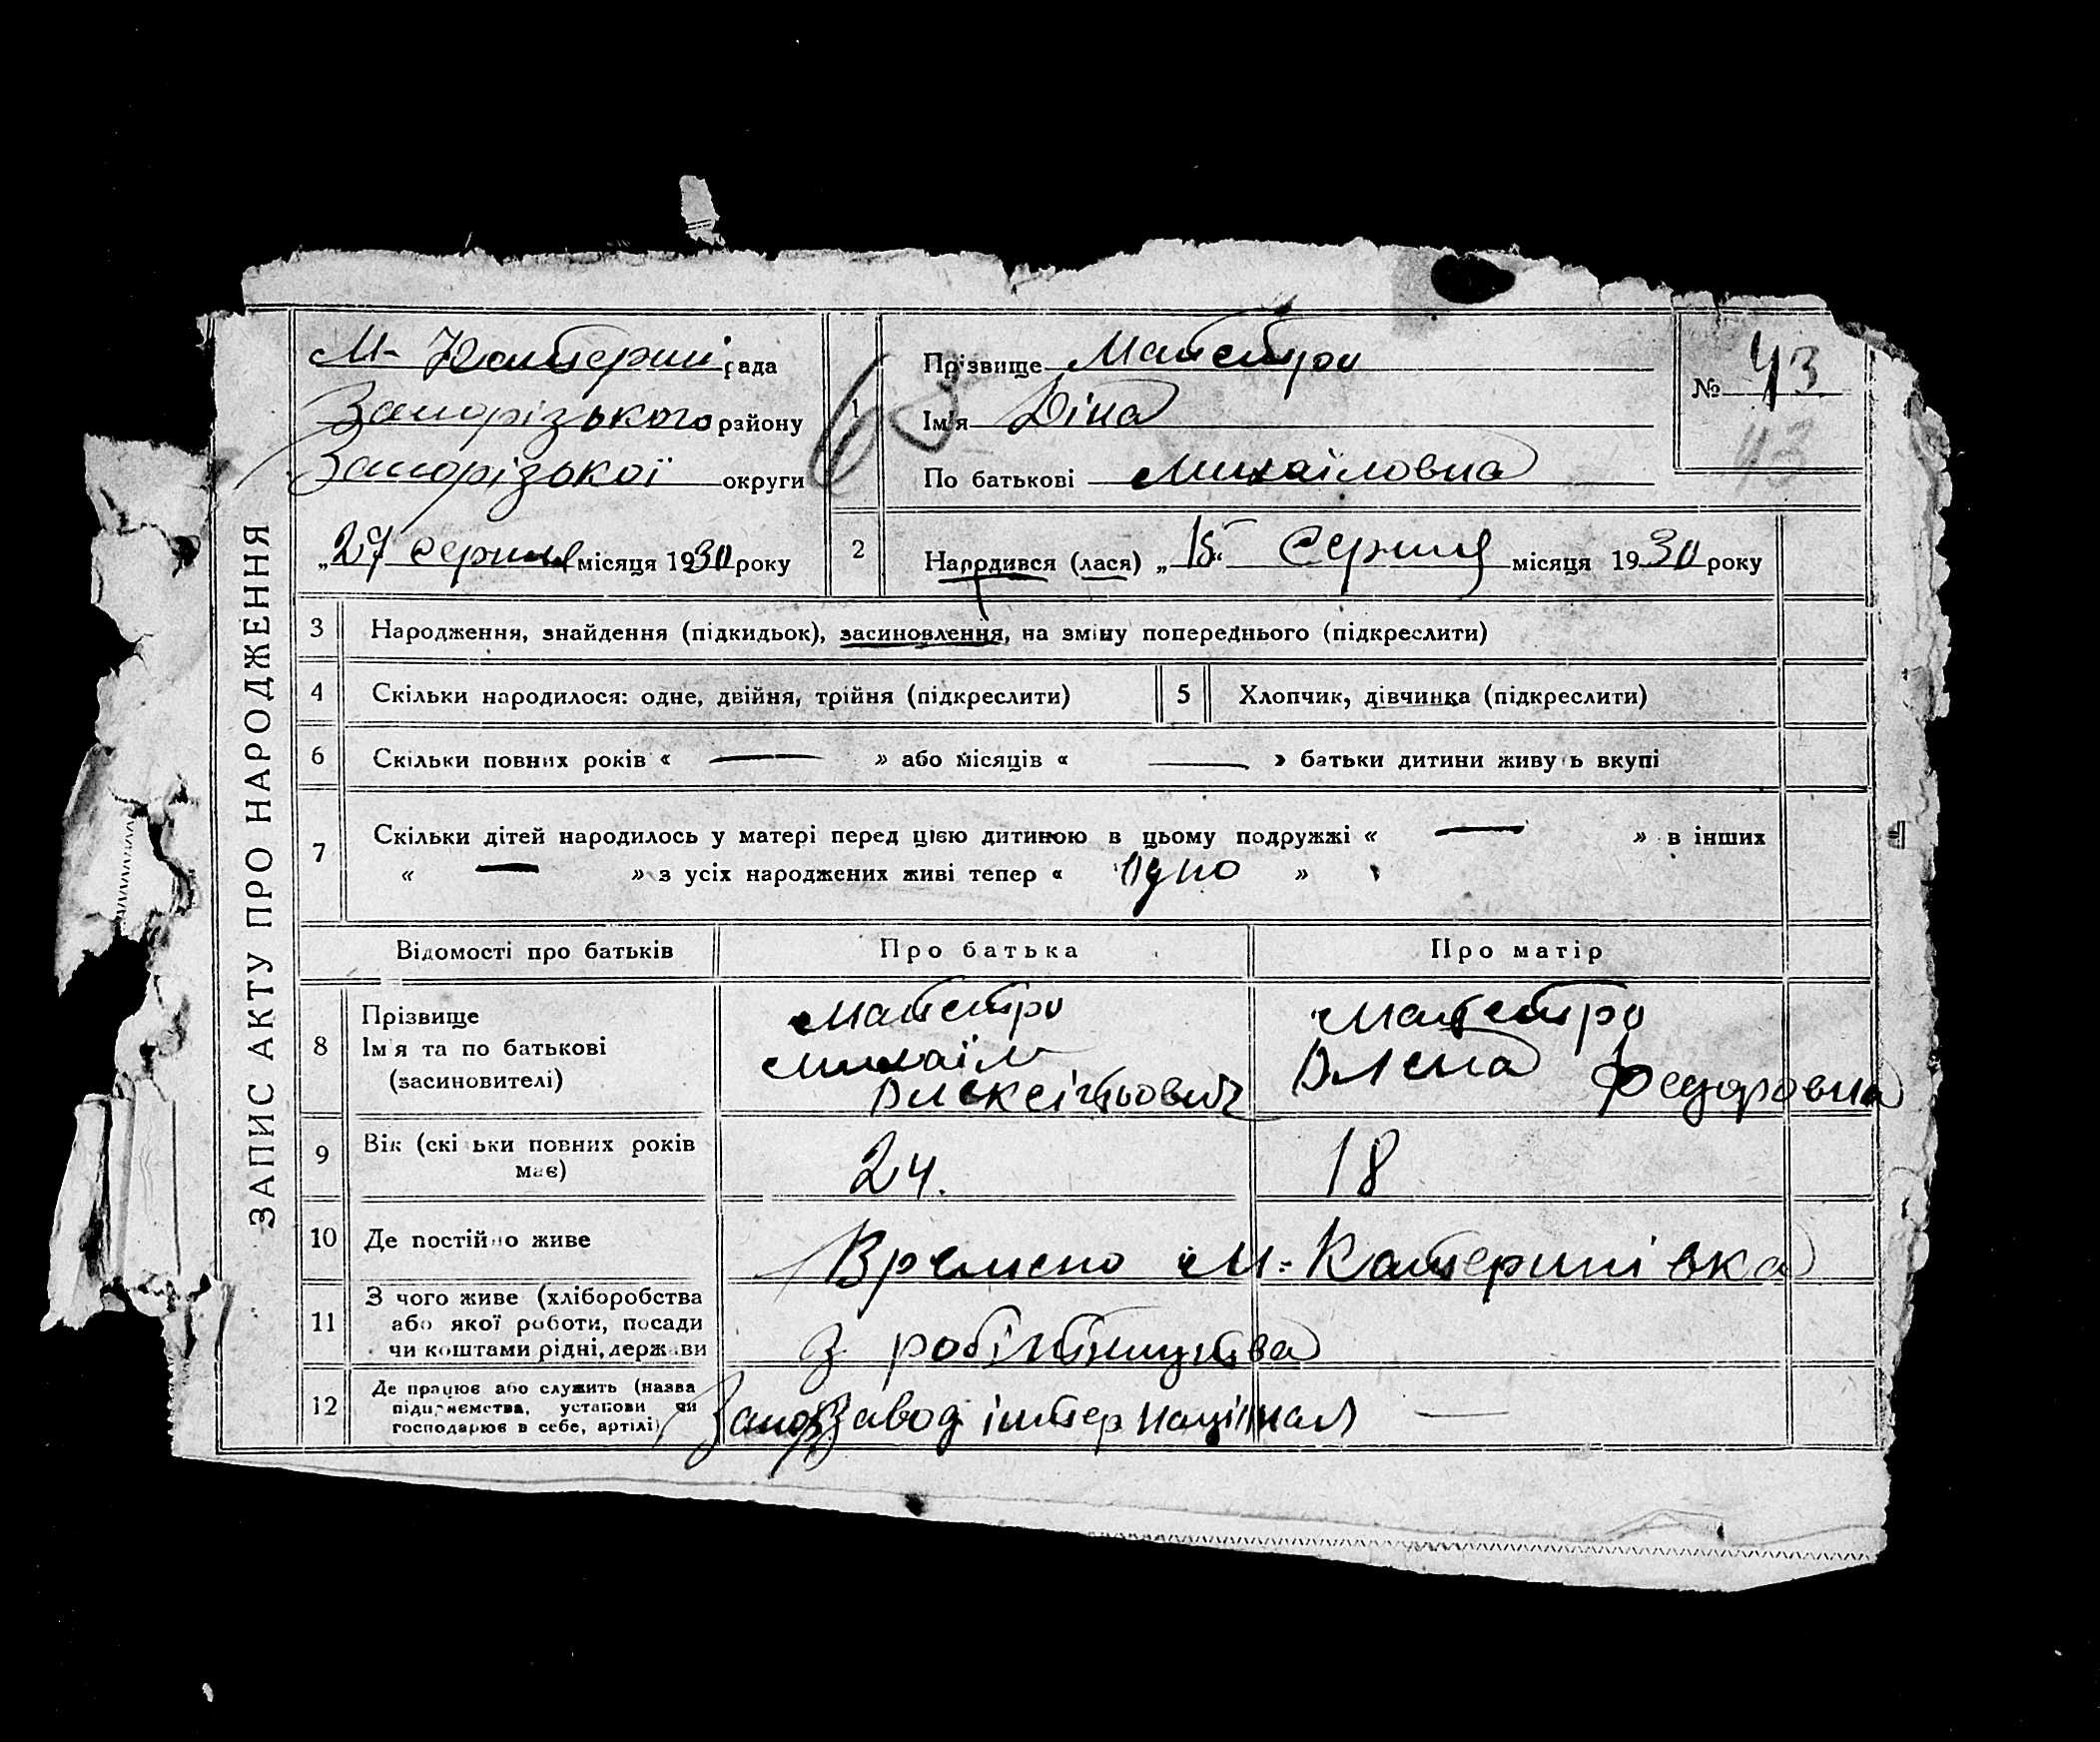 ЗАПИС АКТУ ПРО НАРОДЖЕННЯ
М- Катерині рада
Запорізького району
Запорізької округи
„27 серпня місяця 1930 року
63
1
Прізвище Маістро
Ім'я Діна
По батькові Михаіловна
№ 43
43
2 Народився (лася) „15“ Серпня місяця 1930 року
3 Народження, знайдення (підкидьок), засиновлення, на зміну попереднього (підкреслити)
4 Скільки народилося: одне, двійня, трійня (підкреслити) 5 Хлопчик, дівчинка (підкреслити)
6 Скільки повних років « — » або місяців « — » батьки дитини живу ь вкупі
7 Скільки дітей народилось у матері перед цією дитиною в цьому подружжі « — » в інших
« — » з усіх народжених живі тепер « одно »
Відомості про батьків Про батька Про матір
8 Прізвище
Ім'я та по батькові
(засиновителі)
Маістро
Михаіл
Алексітьович
Маістро
Алена Федоровна
9 Вік (скі ьки повних років
має)
24. 18
10 Де постійно живе Времено М-Катеринівка
11 З чого живе (хліборобства
або якої роботи, посади
чи коштами рідні, держави
З робітництва
12 Де працює або служить (назва
підприємства, установи чи
господарює в себе, артілі)
Запор. Завод інтернаціинал —